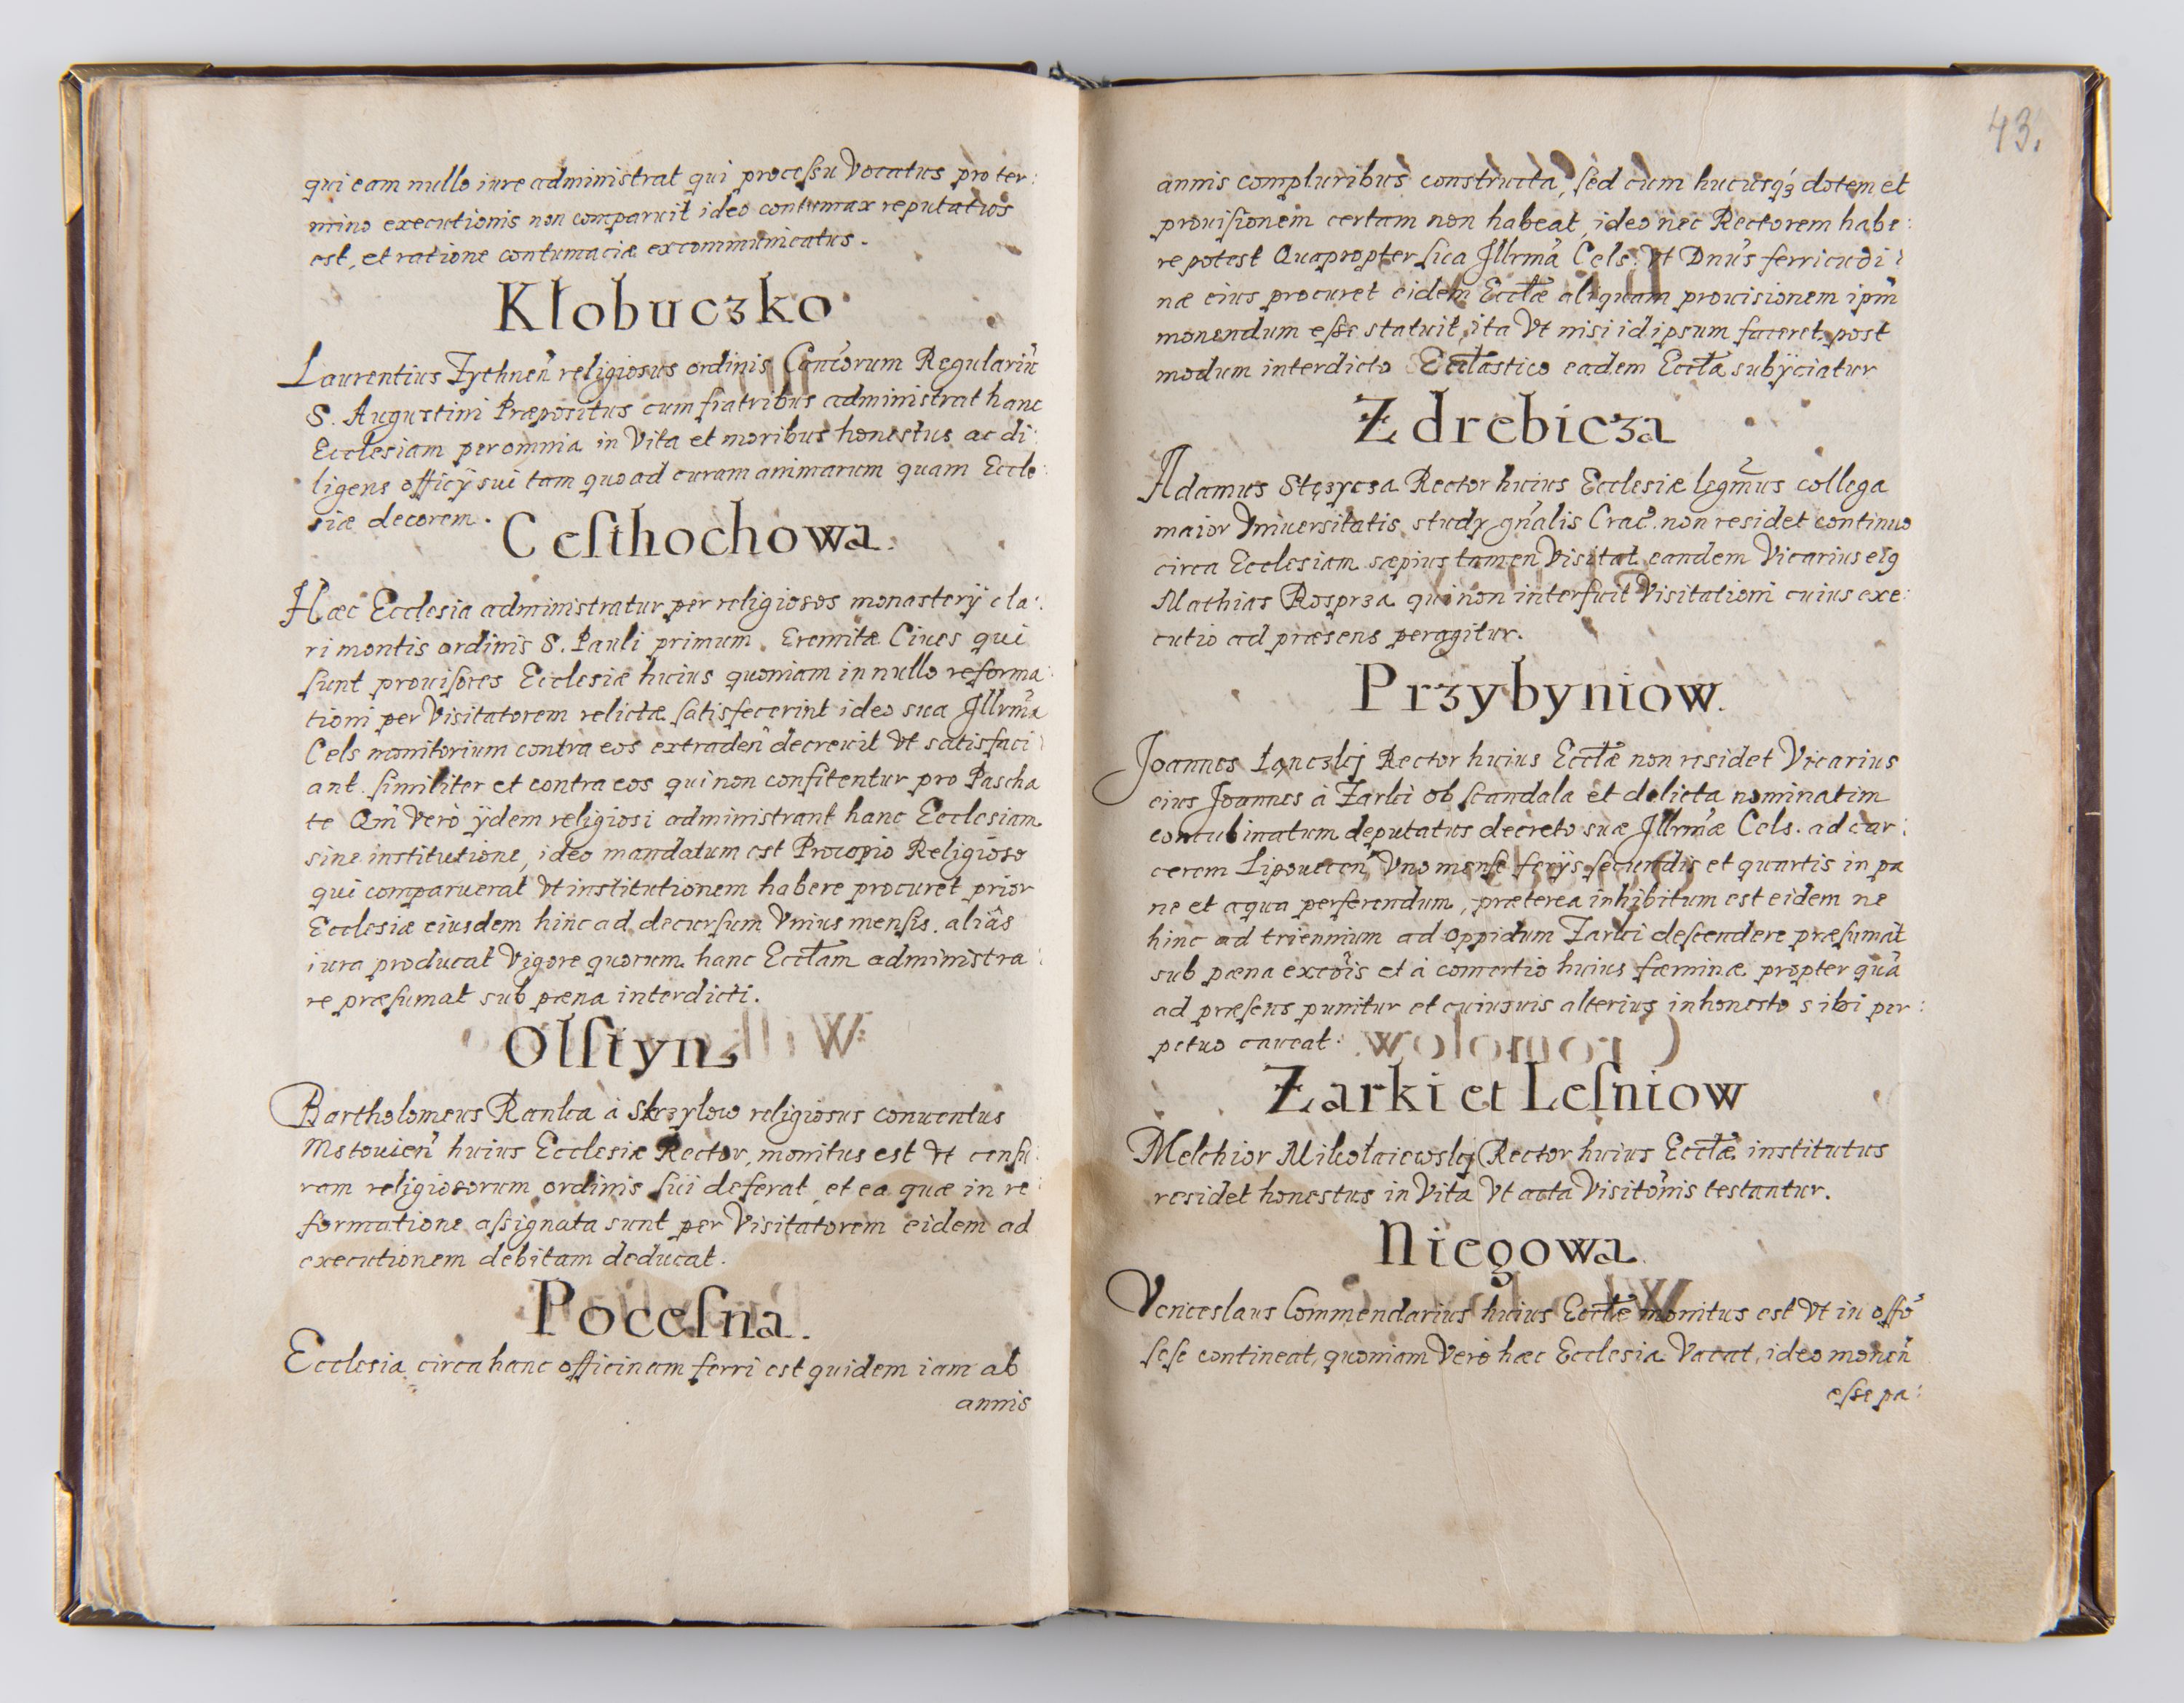 qui eam nullo iure administrat qui processu Vocatus pro ter:
mino executionis non comparuit ideo contumax reputatus
est, et ratione contumaciæ excommunicatus.
Kłobuczko
Laurentius Zythnen̄ religiosus ordinis Canc̄orum Regulariu̅
S. Augustini Præpositus cum fratribus administrat hanc
Ecclesiam per omnia in Vita et moribus honestus ac di:
ligens officÿ sui tam quo ad curam animarum quam Eccle:
siæ decorem.
Cesthochowa.
Hæc Ecclesia administratur per religiosos monasterÿ cla:
ri montis ordinis S. Pauli primum. Eremitæ Ciues qui
sunt prouisores Ecclesiæ huius quoniam in nullo reforma:
tioni per Visitatorem relictæ satisfecerint ideo sua Jllrma̅
Cels monitorium contra eos extraden̄ decreuit Vt satisfaci:
ant. similiter et contra eos qui non confitentur pro Pascha
te Qm̄ Verò ÿdem religiosi administrant hanc Ecclesiam
sine institutione, ideo mandatum est Procopio Religioso
qui comparuerat Vt institutionem habere procuret prior
Ecclesiæ eiusdem hinc ad decursum Vnius mensis. aliâs
iura producat Vigore quorum hanc Eccłam administra:
re præsumat sub pæna interdicti.
Olstyn
Bartholomeus Ranka à Skrzylow religiosus conuentus
Mstouien̄ huius Ecclesiæ Rector, monitus est Vt censu:
ram religiosorum ordinis sui deferat et ea quæ in re:
formatione assignata sunt per Visitatorem eidem ad
executionem debitam deducat.
Pocesna.
Ecclesia circa hanc officinam ferri est quidem iam ab
annis
43.
annis compluribus constructa, sed cum hucusqꝫ dotem et
prouisionem certam non habeat, ideo nec Rectorem habe:
re potest Quapropter sua Jllrma̅ Cels. Vt Dnu̅s ferricudi:
næ eius procuret eidem Eccłæ aliquam prouisionem ipm̄
monendum esse statuit, ita Vt nisi id ipsum faceret post
modum interdicto Eccłastico eadem Eccła subÿciatur
Zdrebicza
Adamus Stęzycza Rector huius Ecclesiæ legmus collega
maior Vniuersitatis studÿ gn̄alis Crac̄. non residet continuo
circa Ecclesiam sæpius tamen Visitat eandem Vicarius eiꝗ
Mathias Rosprza qui non interfuit Visitationi cuius exe:
cutio ad præsens peragitur.
Przybyniow.
Joannes Łanczkj Rector huius Eccłæ non residet Vicarius
eius Joannes à Zarki ob scandala et delicta nominatim
concubinatum deputatus decreto suæ Jllrmæ Cels. ad car:
cerem Lipouecen̄ Vno mense ferÿs secundis et quartis in pa
ne et aqua perferendum, præterea inhibitum est eidem ne
hinc ad triennium ad oppidum Zarki descendere præsumat
sub pæna exco̅is et à comertio huius fæminæ propter qua̅
ad præsens punitur et cuiusuis alterius inhonesto sibi per:
petuo caueat:
Zarki et Lesniow
Melchior Mikołaiewskj Rector huius Eccłæ institutus
residet honestus in Vita Vt acta Visito̅nis testantur.
Niegowa.
Venceslaus Commendarius huius Eccłæ monitus est Vt in offo̅
sese contineat, quoniam Verò hæc Ecclesia Vacat, ideo monen̄
esse pa: